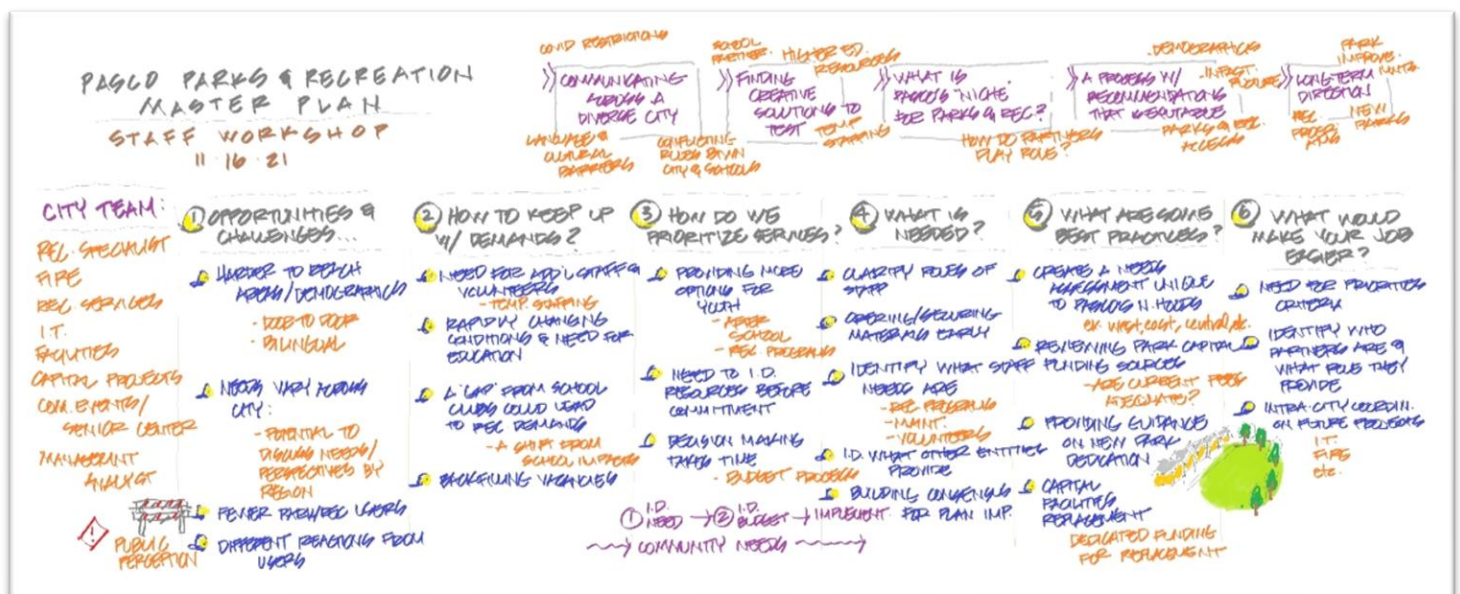 PASCO PARKS & RECREATION
MASTER PLAN
STAFF WORKSHOP
11·16·21
COVID RESTRICTIONS
COMMUNICATING
ACROSS A
DIVERSE CITY
LANGUAGE &
CULTURAL
BARRIERS
CONFLICTING
RULES BTWN
CITY & SCHOOLS
SCHOOL
PARTNER.
HIGHER ED.
RESOURCES
FINDING
CREATIVE
SOLUTIONS TO
TEST
TEMP
STAFFING
WHAT IS
PASCO'S "NICHE"
FOR PARKS & REC?
HOW DO PARTNERS
PLAY ROLE?
·DEMOGRAPHICS
A PROCESS W/
RECOMMENDATIONS
THAT IS EQUITABLE
PARKS & REC.
ACCESS
PARK
IMPROVE-
LONG-TERM
DIRECTION
REC.
NEW
PARKS
CITY TEAM:
REC. SPECIALIST
FIRE
REC. SERVICES
I.T.
FACILITIES
CAPITAL PROJECTS
COM. EVENTS/
SENIOR CENTER
MANAGEMENT
ANALYST
! PUBLIC
PERCEPTION
1 OPPORTUNITIES &
CHALLENGES...
HARDER TO REACH
AREAS/DEMOGRAPHICS
- DOOR TO DOOR
- BILINGUAL
NEEDS VARY ACROSS
CITY:
- POTENTIAL TO
DISCUSS NEEDS/
PERSPECTIVES BY
REGION
FEWER PARK/REC USERS
DIFFERENT REACTIONS FROM
USERS
2 HOW TO KEEP UP
W/ DEMANDS?
NEED FOR ADD'L STAFF &
VOLUNTEERS
- TEMP. STAFFING
RAPIDLY CHANGING
CONDITIONS & NEED FOR
EDUCATION
A "GAP" FROM SCHOOL
CLUBS COULD LEAD
TO REC DEMANDS
- A SHIFT FROM
SCHOOL IMPACTS
BACKFILLING VACANCIES
3 HOW DO WE
PRIORITIZE SERVICES?
PROVIDING MORE
OPTIONS FOR
YOUTH
- AFTER
SCHOOL
- REC. PROGRAMS
NEED TO I.D.
RESOURCES BEFORE
COMMITMENT
DECISION MAKING
TAKES TIME
- BUDGET PROCESS
1 I.D. NEED → 2 I.D. BUDGET → IMPLEMENT
COMMUNITY NEEDS
4 WHAT IS
NEEDED?
CLARITY ROLES OF
STAFF
ORDERING/SECURING
MATERIALS EARLY
IDENTIFY WHAT STAFF
NEEDS ARE
- REC PROGRAMS
- MAINT.
- VOLUNTEERS
I.D. WHAT OTHER ENTITIES
PROVIDE
BUILDING CONSENSUS
FOR PLAN IMP.
5 WHAT ARE SOME
BEST PRACTICES?
CREATE A NEEDS
ASSESSMENT UNIQUE
TO PASCO'S N.HOODS
ex. west, east, central, etc.
REVIEWING PARK CAPITAL
FUNDING SOURCES
- ARE CURRENT FEES
ADEQUATE?
PROVIDING GUIDANCE
ON NEW PARK
DEDICATION
CAPITAL
FACILITIES
REPLACEMENT
DEDICATED FUNDING
FOR REPLACEMENT
6 WHAT WOULD
MAKE YOUR JOB
EASIER?
NEED FOR PRIORITIES
CRITERIA
IDENTIFY WHO
PARTNERS ARE &
WHAT ROLE THEY
PROVIDE
INTRA-CITY COORDIN.
ON FUTURE PROJECTS
I.T.
FIRE
etc.